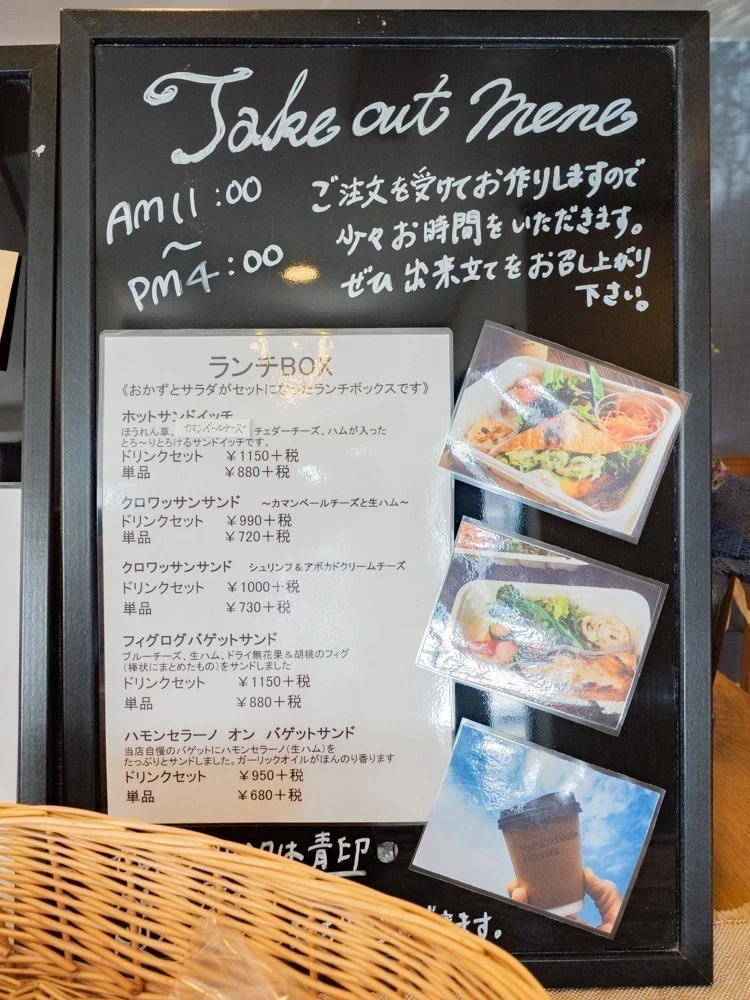 Take out mene
AM11:00
〜
PM4:00
ご注文を受けてお作りしますので
少々お時間をいただきます。
ぜひ出来立てをお召し上がり
下さい。
ランチBOX
《おかずとサラダがセットになったランチボックスです》
ホットサンドイッチ
ほうれん草、カマンベールチーズ チェダーチーズ、ハムが入った
とろ～りとろけるサンドイッチです。
ドリンクセット ￥1150＋税
単品 ￥880＋税
クロワッサンサンド ～カマンベールチーズと生ハム～
ドリンクセット ￥990＋税
単品 ￥720＋税
クロワッサンサンド シュリンプ&アボカドクリームチーズ
ドリンクセット ￥1000＋税
単品 ￥730＋税
フィグログバゲットサンド
ブルーチーズ、生ハム、ドライ無花果&胡桃のフィグ
(棒状にまとめたもの)をサンドしました
ドリンクセット ￥1150＋税
単品 ￥880＋税
ハモンセラーノ オン バゲットサンド
当店自慢のバゲットにハモンセラーノ(生ハム)を
たっぷりとサンドしました。ガーリックオイルがほんのり香ります
ドリンクセット ￥950＋税
単品 ￥680＋税
は青印
きます。